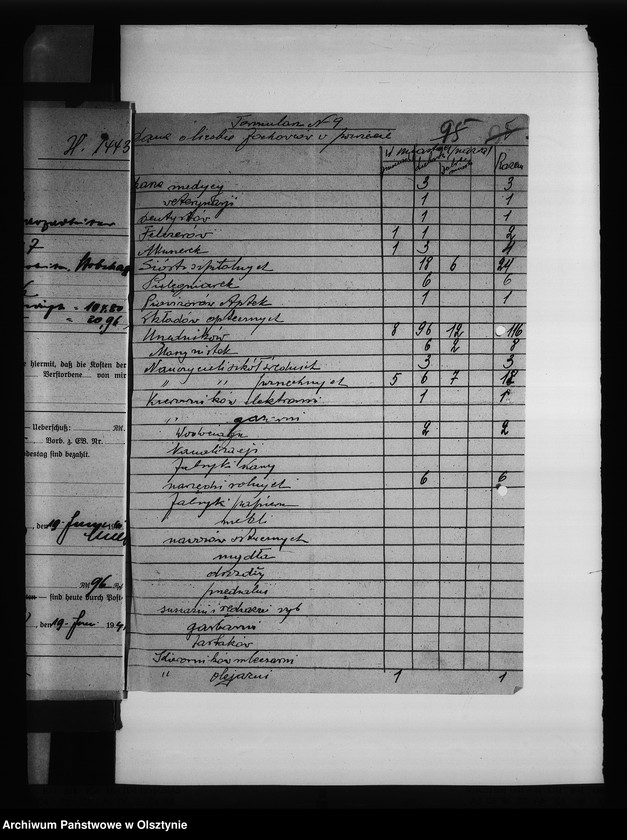 H. 1443
7
= 10 x.80
= 20,96
e hiermit, daß die Kosten der
Verstorbene von mir
Ueberschuß: RM.
Vorb. z. EB. Nr.
destag sind bezahlt.
, den 19. Juni 19
RM. 96 Rpf
sind heute durch Post-
, den 19. Juni 19
Formularz № 9
95
dane o liczbie fachowców w powiecie
Razem
medycy 3 3
weterynarji 1 1
dentystów 1 1
Felczerów 1 1 2
Akuszerek 1 3 4
Sióstr szpitalnych 18 6 24
Pielęgniarek 6 6
Prowizorów Aptek 1 1
składów aptecznych
Urzędników 8 96 12 116
Maszynistek 6 2 8
Nauczycieli szkół średnich 3 3
" " powszechnych 5 6 7 18
Kierowników elektrowni 1 1
" gazowni
Wodociągów 2 2
Kanalizacji
Fabryki
narzędzi rolnych 6 6
Fabryki papieru
mebli
nawozów sztucznych
mydła
drożdży
przędzalni
suszarni i wędzarni ryb
garbarni
tartaków
Kierowników mleczarni
" olejarni 1 1
Archiwum Państwowe w Olsztynie